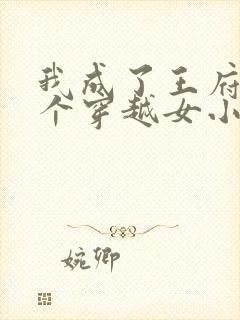 我成了王府
个穿越女小
婉卿